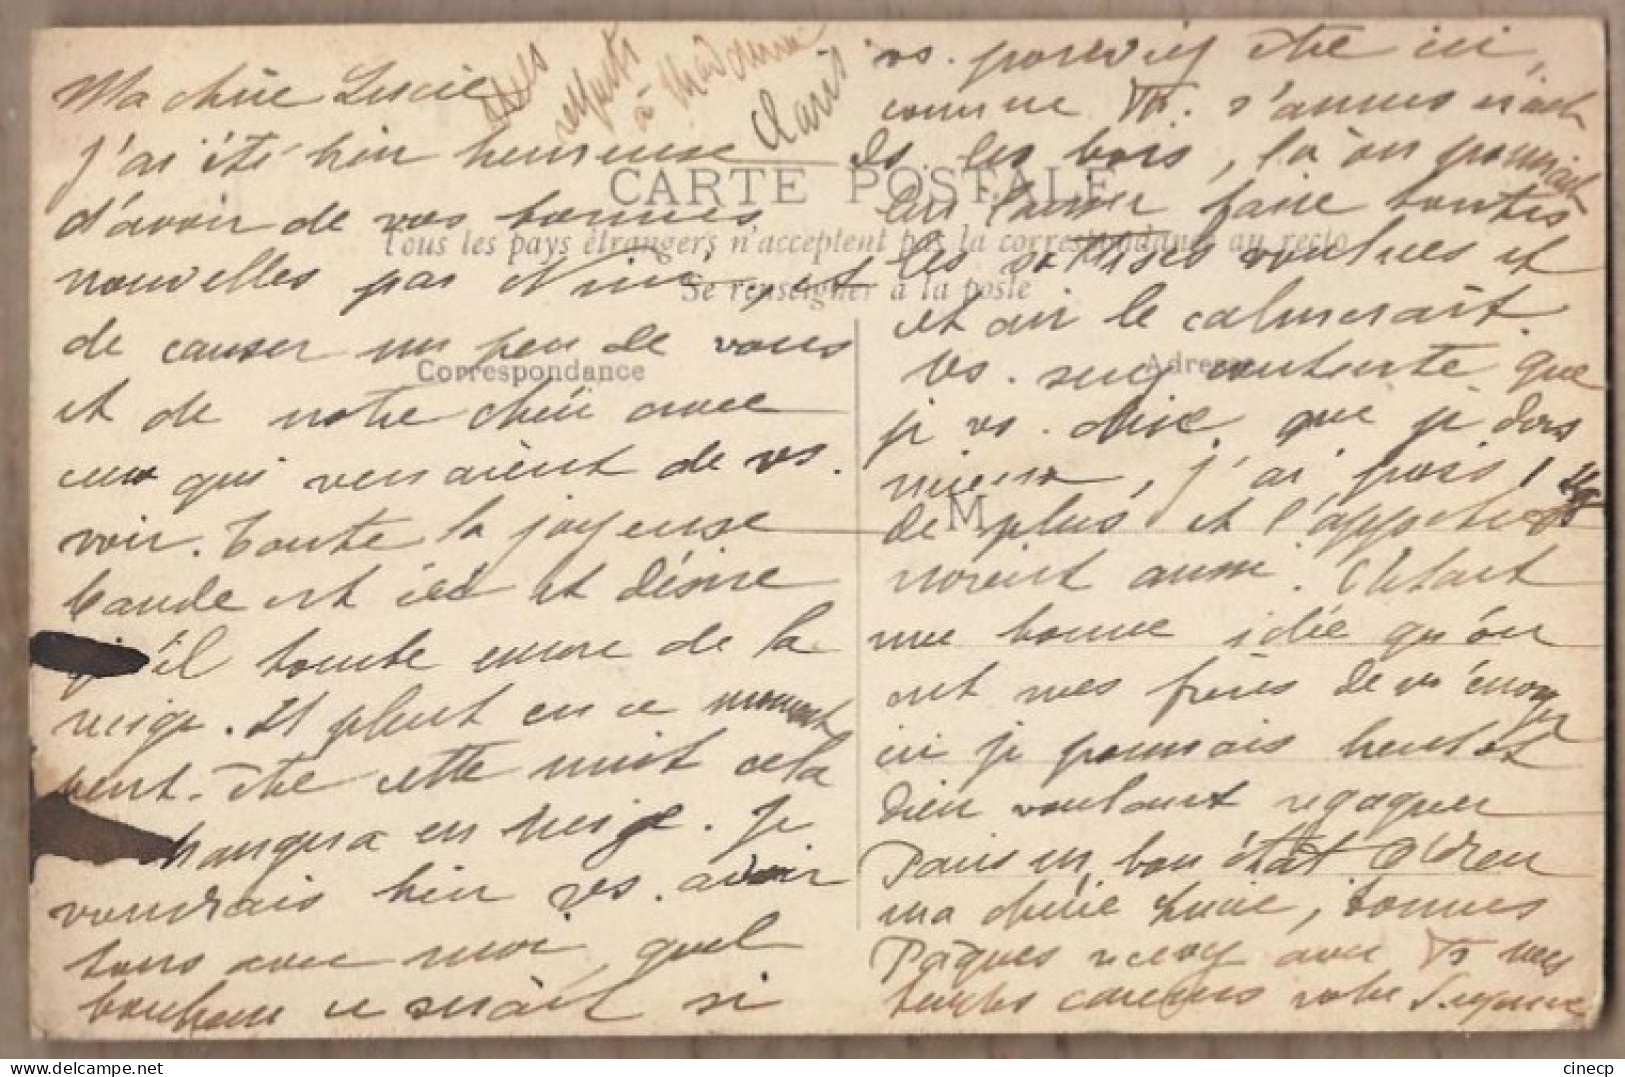 Ma chère Lucie
J'ai été bien heureuse
d'avoir de vos bonnes
nouvelles par Nini, et
de causer un peu de vous
et de notre chéri avec
ceux qui venaient de vs.
voir. Toute la joyeuse
bande est ici et désire
qu'il tombe encore de la
neige. Il pleut en ce moment
peut-être cette nuit cela
changera en neige. Je
voudrais bien vs. avoir
tous avec moi, quel
bonheur ce serait si
respects
à Madame
Clavis
CARTE POSTALE
Tous les pays étrangers n'acceptent pas la correspondance au recto
Se renseigner à la poste
Correspondance
Adresse
M
vs. pouviez être ici,
comme s'amuserait
ds. les bois, là on pourrait
lui laisser faire toutes
les sottises voulues et
et air le calmerait.
Vs. serez contente que
je vs. dise, que je dors
mieux, j'ai
de plus et l'appétit
revient aussi. C'était
une bonne idée qu'on
ont mes frères de m'envoyer
ici je pourrais bientôt
Dieu voulant regagner
Paris en bon état. Adieu
ma chérie Lucie, bonnes
Pâques recevez avec Ts mes
tendres caresses votre Suzanne
cinecp